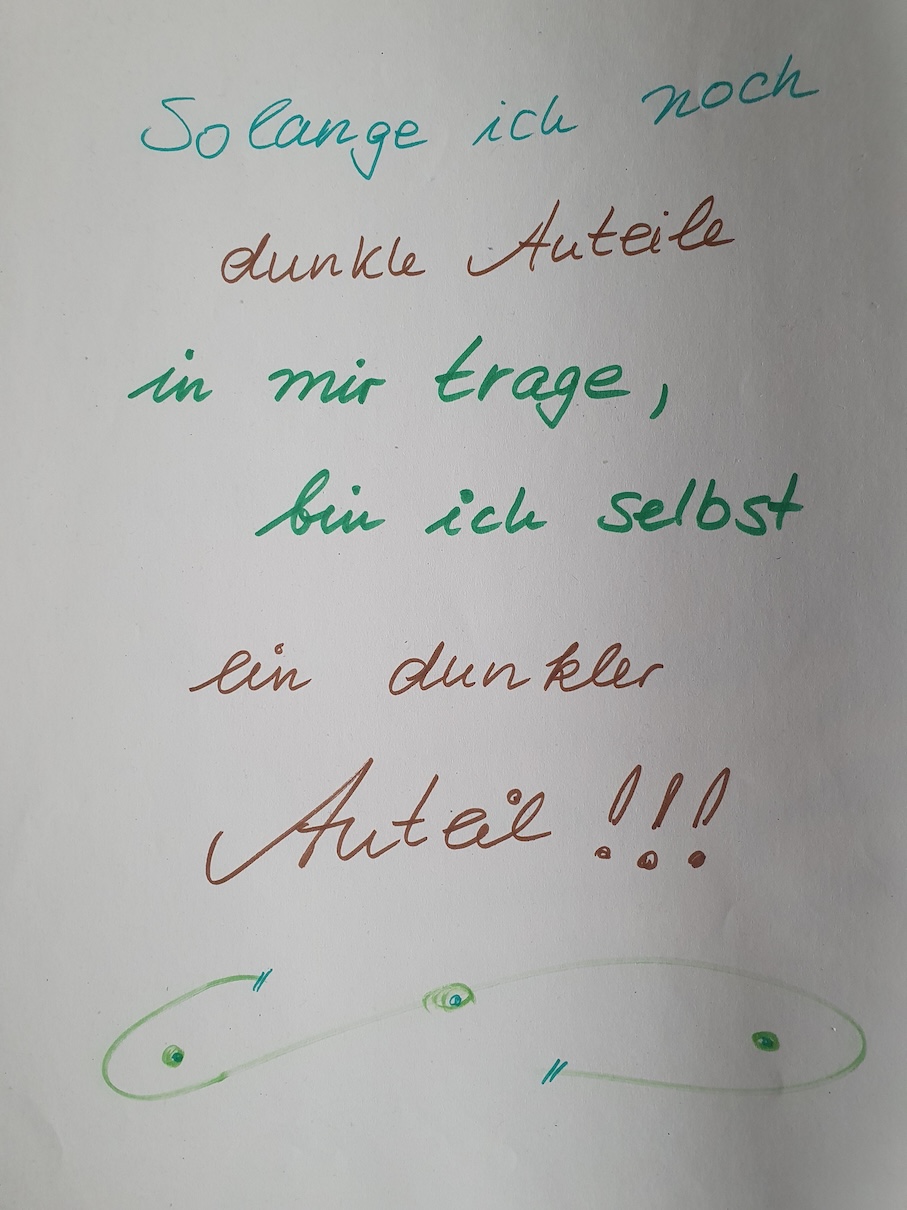 Solange ich noch
dunkle Anteile
in mir trage,
bin ich selbst
ein dunkler
Anteil !!!